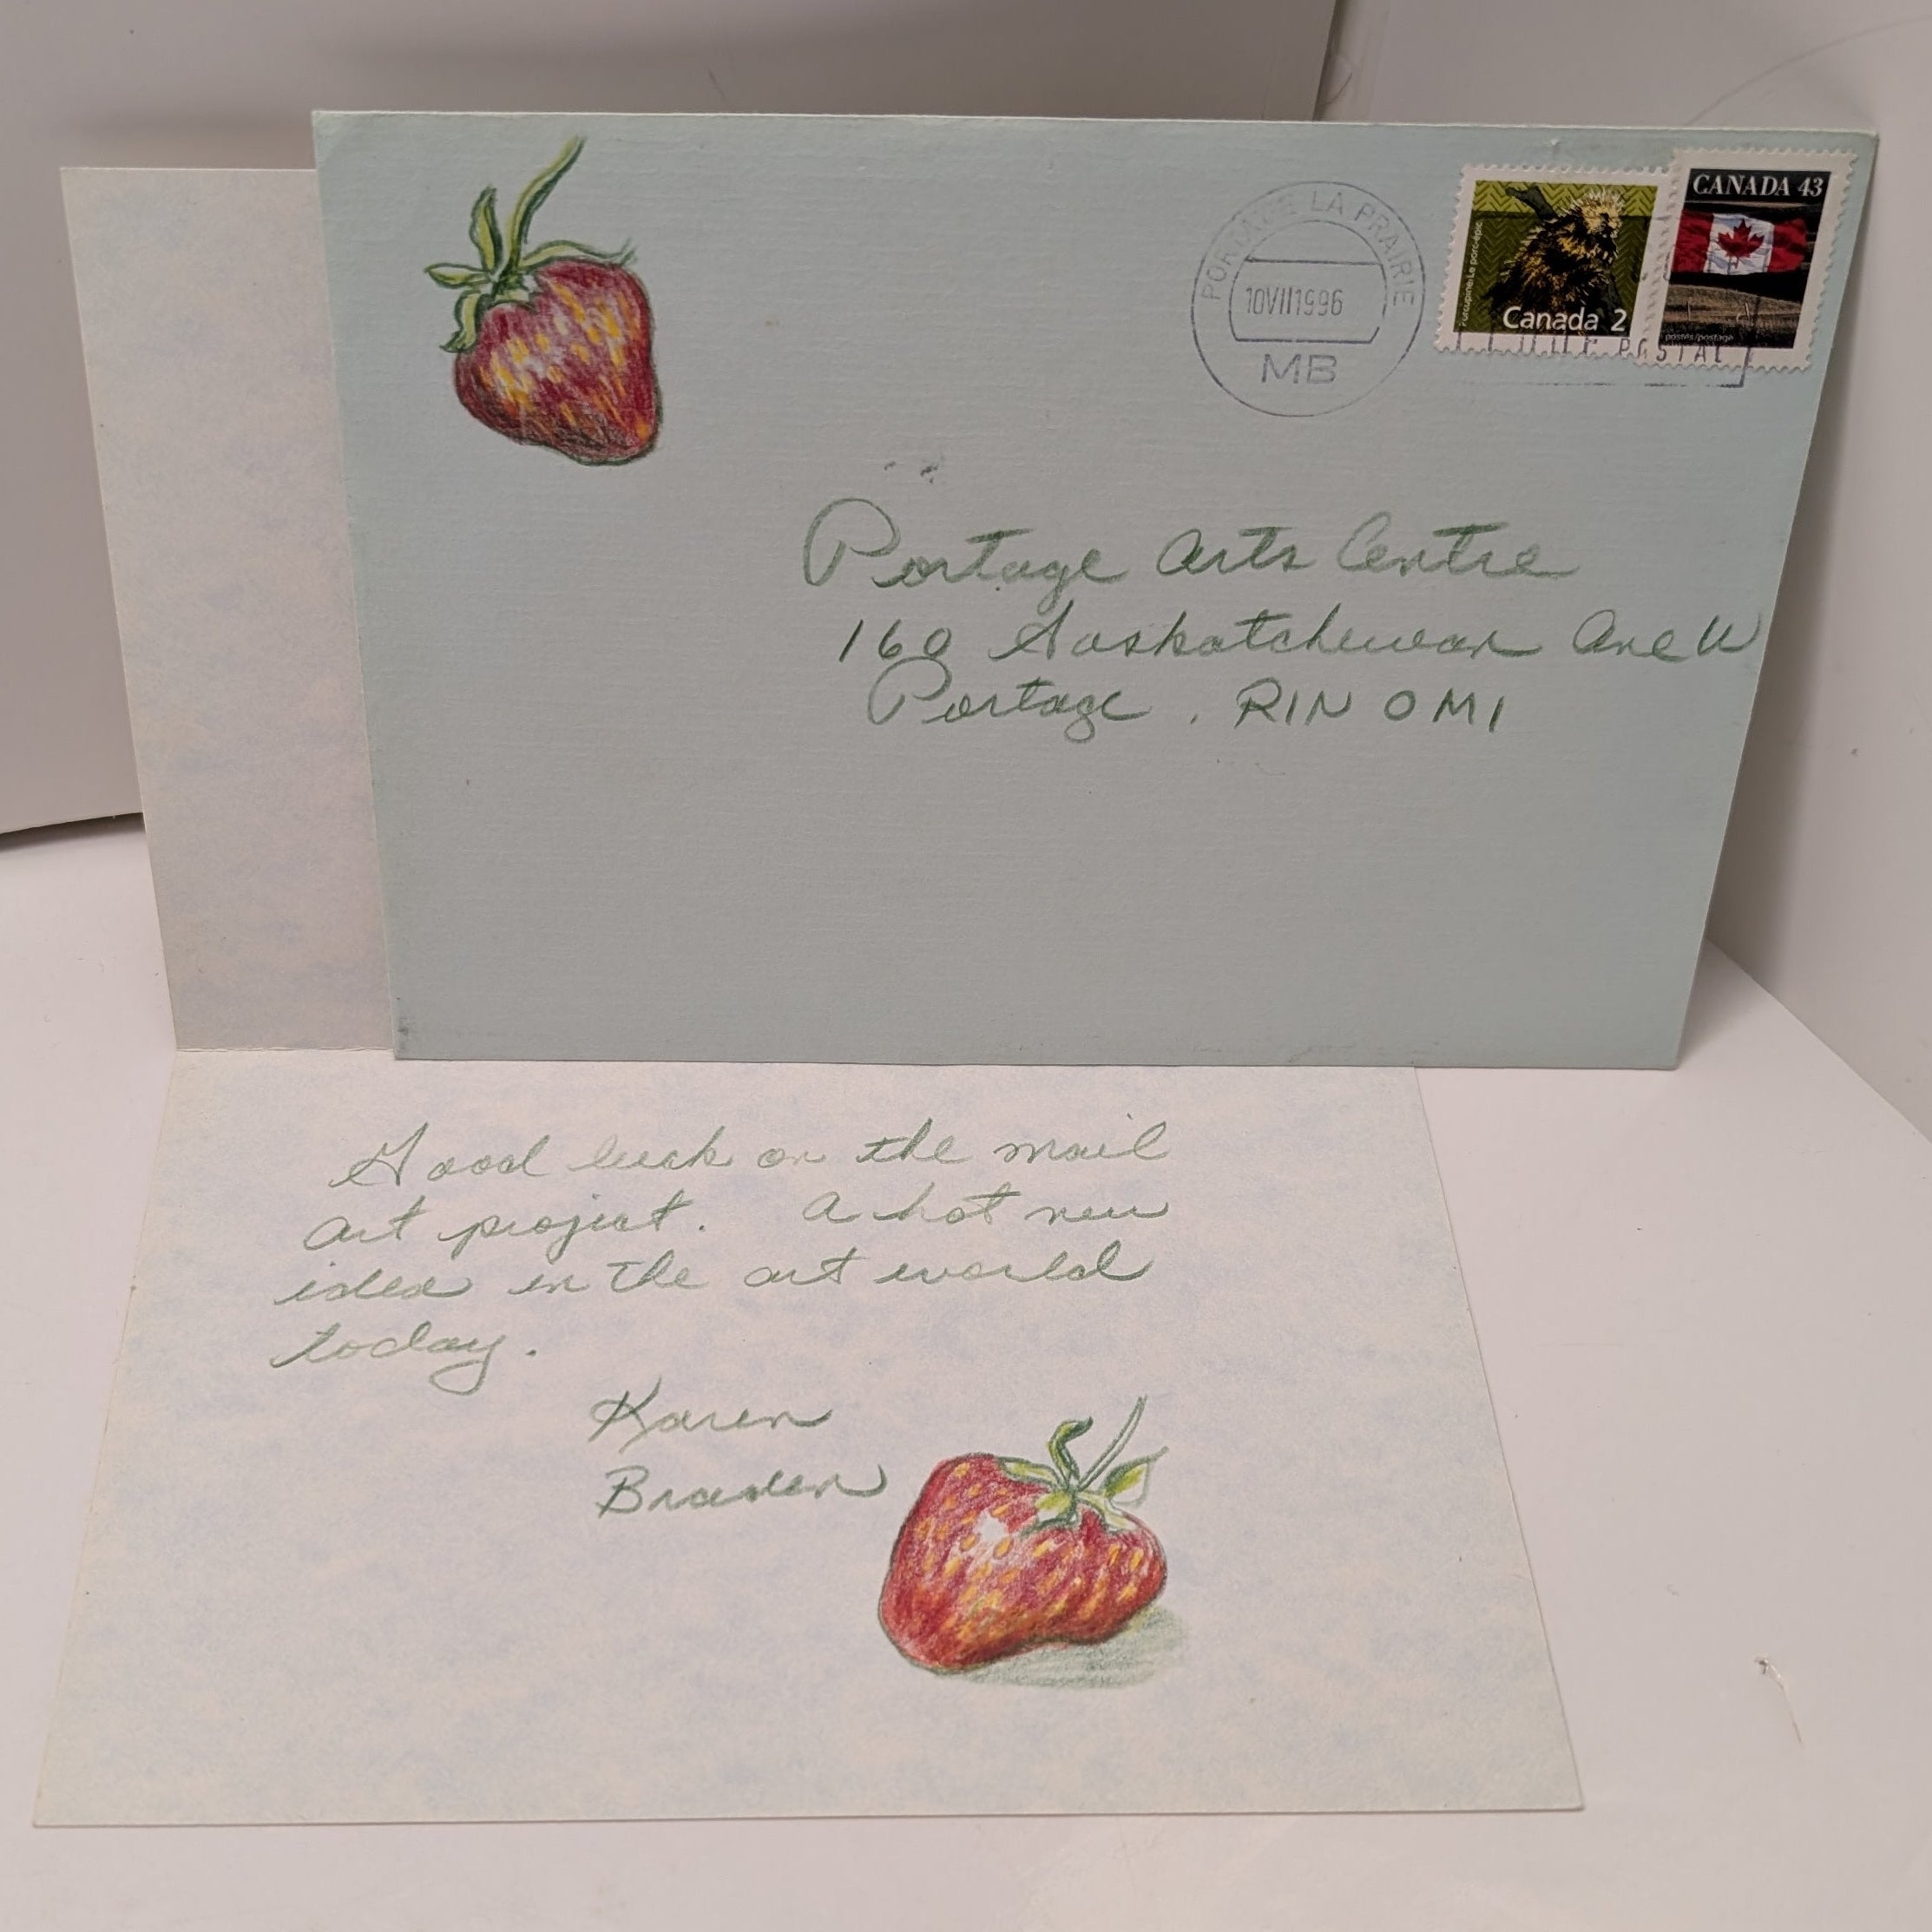 PORTAGE LA PRAIRIE
10VII1996
MB
Porcupine/Le porc-épic
Canada 2
CANADA 43
postes/postage
POSTAL
Portage Arts Centre
160 Saskatchewan Ave W
Portage . R1N 0M1
Good luck on the mail
art project. A hot new
idea in the art world
today.
Karen
Braden